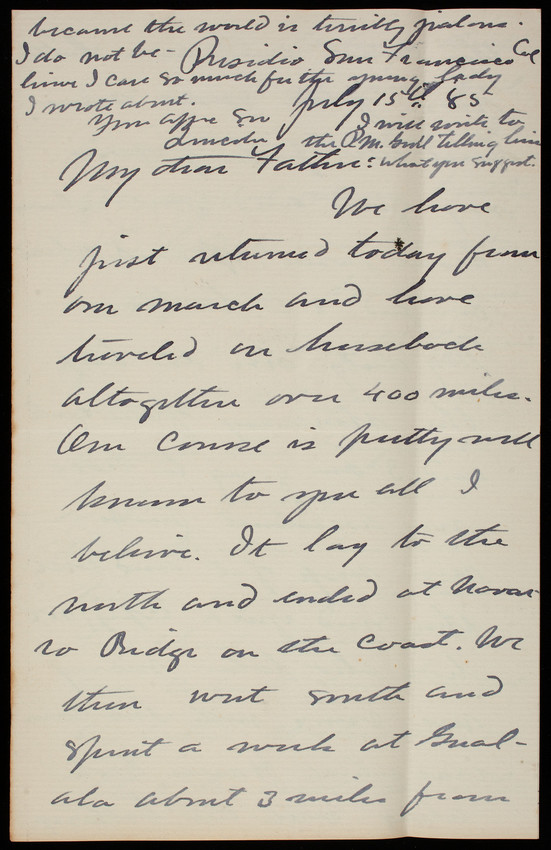 because the world is terribly jealous.
I do not be-
lieve I care so much for the young lady
I wrote about.
Your affe Son
Lincoln
I will write to
the P.M. Genl telling him
what you suggest.
Presidio San Francisco Cal
July 15th 85
My dear Father:
We have
just returned today from
our march and have
traveled on horseback
altogether over 400 miles.
Our course is pretty well
known to you all I
believe. It lay to the
north and ended at Navar-
ro Ridge on the coast. We
then went south and
spent a week at Gual-
ala about 3 miles from